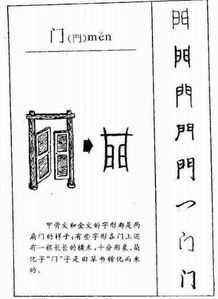 门(門)mén
甲骨文和金文的字形都是两
扇门的样子;有些字形在门上还
有一根长长的横木,十分形象。简
化字“门”字是由草书楷化而来
的。
門
門
門
門
門
门
门
门